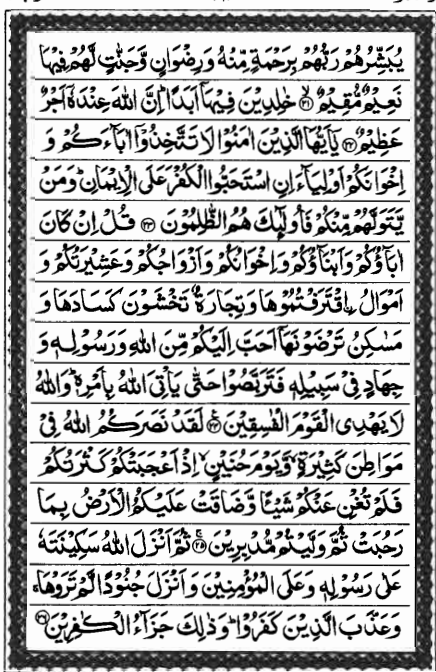 يُبَشِّرُهُمْ رَبُّهُمْ بِرَحْمَةٍ مِّنْهُ وَرِضْوَانٍ وَّجَنّٰتٍ لَّهُمْ فِيْهَا
نَعِيْمٌ مُّقِيْمٌ ۙ﴿۲۱﴾ خٰلِدِيْنَ فِيْهَاۤ اَبَدًا ؕ اِنَّ اللّٰهَ عِنْدَهٗۤ اَجْرٌ
عَظِيْمٌ ﴿۲۲﴾ يٰۤاَيُّهَا الَّذِيْنَ اٰمَنُوْا لَا تَتَّخِذُوْۤا اٰبَآءَكُمْ وَ
اِخْوَانَكُمْ اَوْلِيَآءَ اِنِ اسْتَحَبُّوا الْكُفْرَ عَلَى الْاِيْمَانِ ؕ وَمَنْ
يَّتَوَلَّهُمْ مِّنْكُمْ فَاُولٰٓئِكَ هُمُ الظّٰلِمُوْنَ ﴿۲۳﴾ قُلْ اِنْ كَانَ
اٰبَآؤُكُمْ وَاَبْنَآؤُكُمْ وَاِخْوَانُكُمْ وَاَزْوَاجُكُمْ وَعَشِيْرَتُكُمْ وَ
اَمْوَالُ ۨاقْتَرَفْتُمُوْهَا وَتِجَارَةٌ تَخْشَوْنَ كَسَادَهَا وَ
مَسٰكِنُ تَرْضَوْنَهَاۤ اَحَبَّ اِلَيْكُمْ مِّنَ اللّٰهِ وَرَسُوْلِهٖ وَ
جِهَادٍ فِيْ سَبِيْلِهٖ فَتَرَبَّصُوْا حَتّٰى يَاْتِيَ اللّٰهُ بِاَمْرِهٖ ؕ وَاللّٰهُ
لَا يَهْدِى الْقَوْمَ الْفٰسِقِيْنَ ﴿۲۴﴾ لَقَدْ نَصَرَكُمُ اللّٰهُ فِيْ
مَوَاطِنَ كَثِيْرَةٍ ۙ وَّيَوْمَ حُنَيْنٍ ۙ اِذْ اَعْجَبَتْكُمْ كَثْرَتُكُمْ
فَلَمْ تُغْنِ عَنْكُمْ شَيْئًا وَّضَاقَتْ عَلَيْكُمُ الْاَرْضُ بِمَا
رَحُبَتْ ثُمَّ وَلَّيْتُمْ مُّدْبِرِيْنَ ۚ﴿۲۵﴾ ثُمَّ اَنْزَلَ اللّٰهُ سَكِيْنَتَهٗ
عَلٰى رَسُوْلِهٖ وَعَلَى الْمُؤْمِنِيْنَ وَاَنْزَلَ جُنُوْدًا لَّمْ تَرَوْهَا ۚ
وَعَذَّبَ الَّذِيْنَ كَفَرُوْا ؕ وَذٰلِكَ جَزَآءُ الْكٰفِرِيْنَ ﴿۲۶﴾